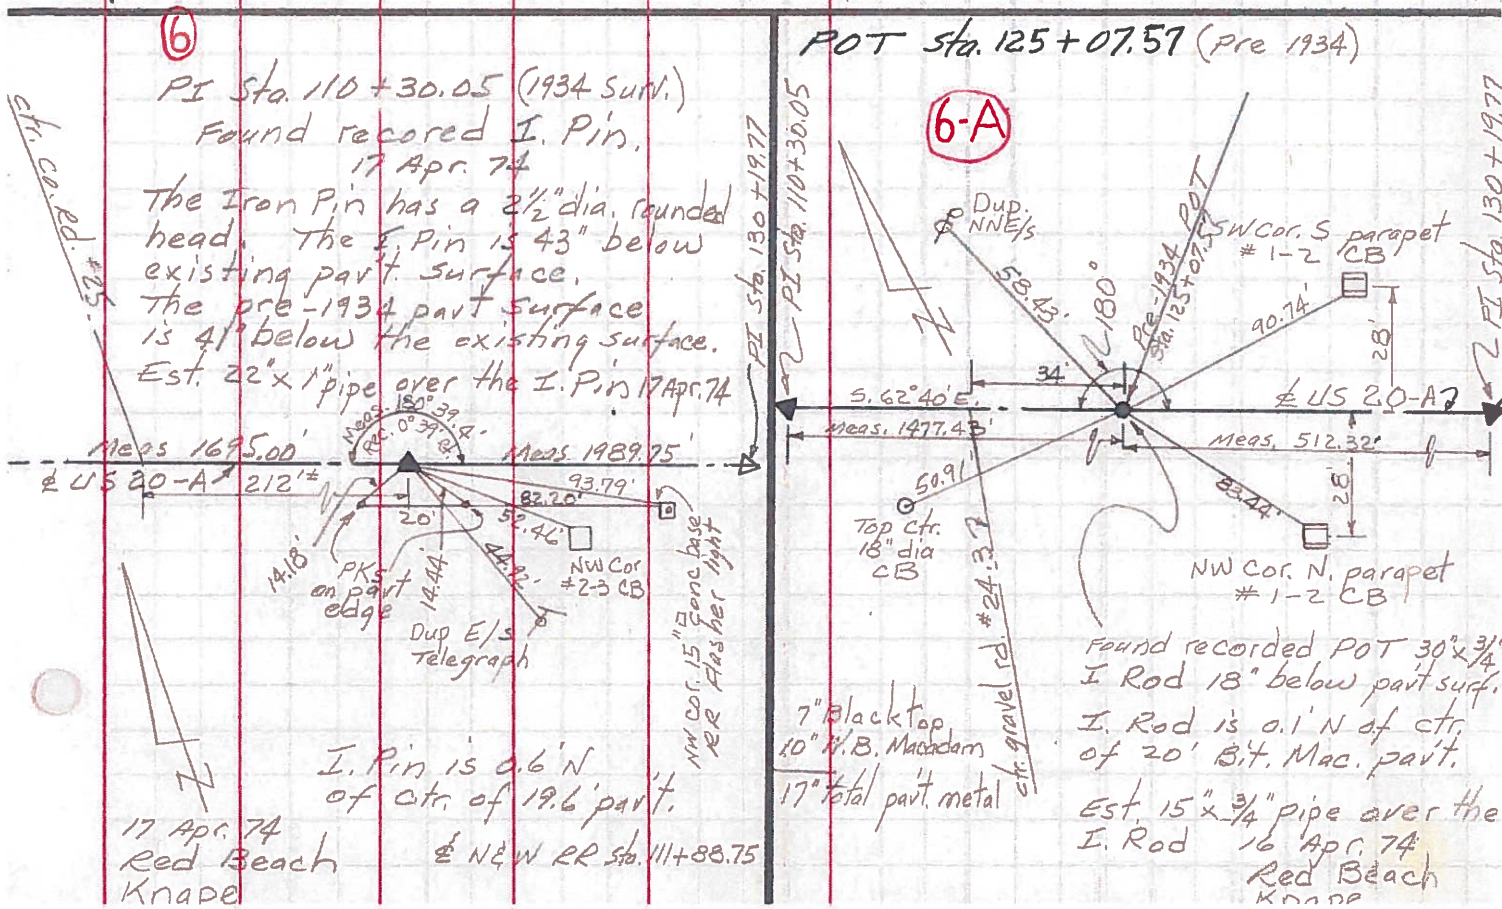 6
PI Sta. 110+30.05 (1934 Surv.)
Found recored I. Pin.
17 Apr. 74
The Iron Pin has a 2½" dia. rounded
head. The I. Pin is 43" below
existing pav't. surface.
The pre-1934 pavt surface
is 41" below the existing surface.
Est. 22" x 1" pipe over the I. Pin 17 Apr. 74
Ctr. Co. Rd. #25
PI Sta. 130+19.77
Meas. 180° 39.4'
Rec. 0° 39' Rt
Meas 1695.00'
Meas 1989.75'
℄ US 20-A
212'±
93.79'
82.20'
20'
52.46'
14.18'
14.44'
44.92'
PKs
on pavt
edge
NW Cor
#2-3 CB
Dup E/s
Telegraph
NW Cor. 15"□ conc base
RR flasher light
I. Pin is 0.6' N
of ctr. of 19.6' pav't.
17 Apr. 74
Red Beach
Knape
℄ N&W RR Sta. 111+88.75
POT Sta. 125+07.57 (Pre 1934)
PI Sta. 110+30.05
6-A
PI Sta 130+19.77
Dup.
NNE/s.
58.43'
180°
Pre-1934 POT
Sta. 125+07.57
SW cor. S parapet
# 1-2 CB
90.74'
28'
34'
S. 62° 40' E.
℄ US 20-A
Meas. 1477.43'
Meas. 512.32'
50.91'
83.44'
28'
Top Ctr.
18" dia
CB
NW Cor. N. parapet
# 1-2 CB
ctr. gravel rd. #24.37
Found recorded POT 30" x 3/4"
I Rod 18" below pavt surf.
7" Blacktop
10" W.B. Macadam
17" total pavt. metal
I. Rod is 0.1' N of ctr.
of 20' Bit. Mac. pav't.
Est. 15" x 3/4" pipe over the
I. Rod 16 Apr. 74
Red Beach
Knape